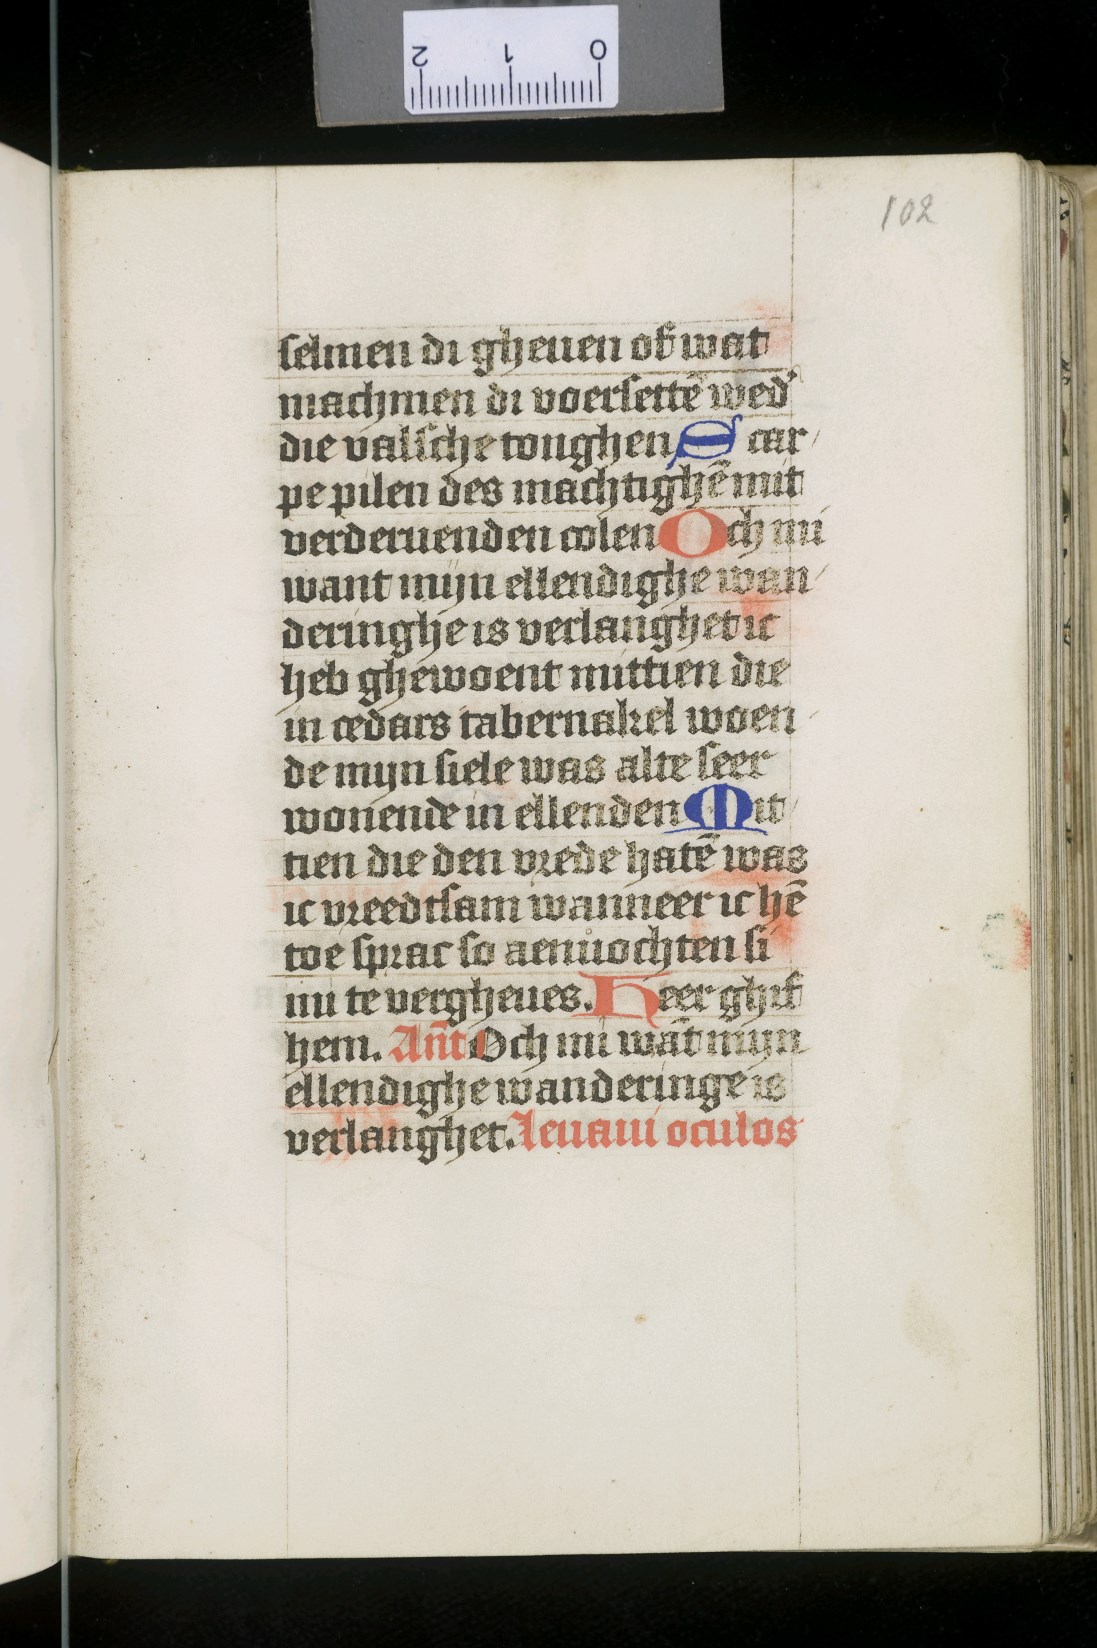 2 1 0
102
selmen di gheuen of wat
machmen di voersettē wed'
die valsche tonghen S car/
pe pilen des machtighē mit
verderuenden colen Och mi
want mijn ellendighe wan/
deringhe is verlanghet ic
heb ghewoent mittien die
in cedars tabernakel woen/
de mijn siele was alte seer
wonende in ellenden Mit/
tien die den vrede hatē was
ic vreedtsam wanneer ic hē
toe sprac so aenuochten si
mi te vergheues. Heer ghif
hem. Añt Och mi wāt mijn
ellendighe wanderinge is
verlanghet. leuaui oculos